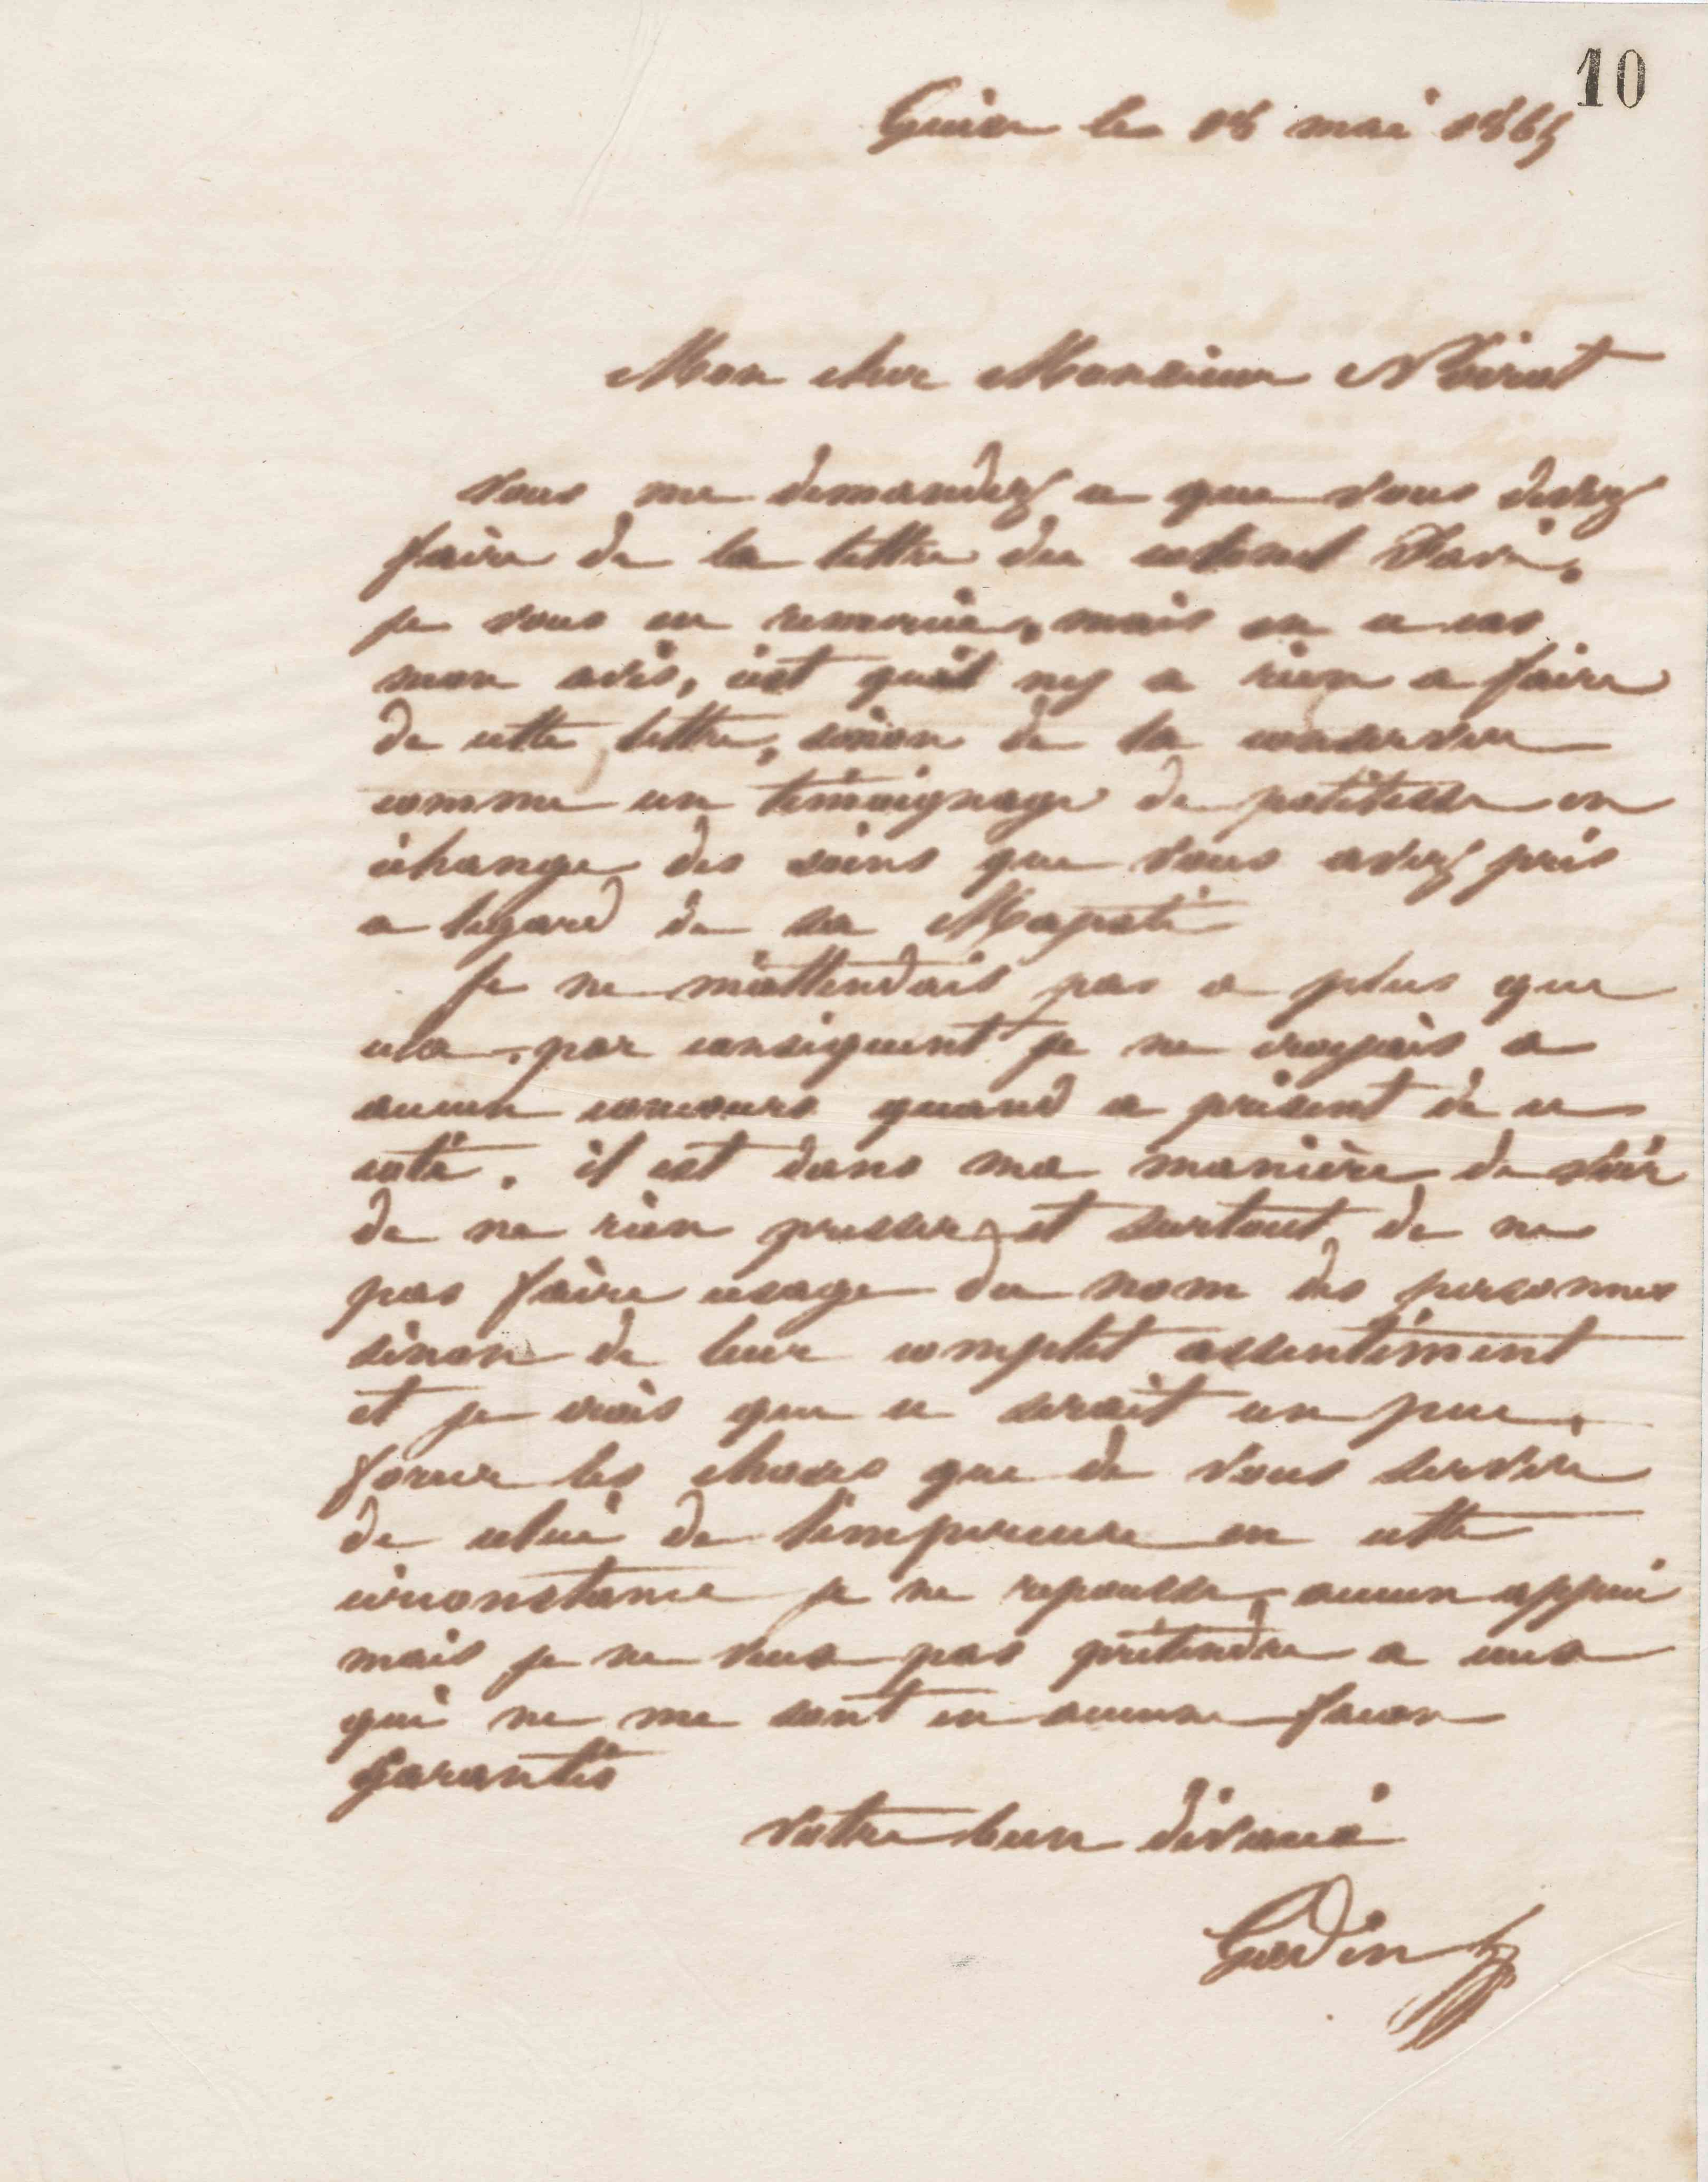 10
Guise le 18 mai 1865
Mon cher Monsieur Noirot
Vous me demandez ce que vous devez
faire de la lettre du colonel Favé,
je vous en remercie, mais en ce cas
mon avis, c'est qu'il n'y a rien a faire
de cette lettre, sinon de la conserver
comme un témoignage de politesse en
échange des soins que vous avez pris
a legard de sa Majesté
Je ne m'attendais pas a plus que
cela, par conséquent je ne croyais a
aucun concours quand a présent de ce
coté. il est dans ma manière de voir
de ne rien presser et surtout de ne
pas faire usage du nom des personnes
sinon de leur complet assentiment
et je crois que ce serait un peu
forcer les choses que de vous servir
de celui de l'empereur en cette
circonstance je ne repousse aucun appui
mais je ne veux pas prétendre a ceux
qui ne me sont en aucune facon
garantis
Votre bien dévoué
Godin